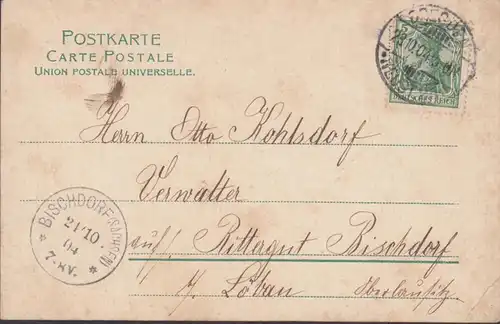 POSTKARTE
CARTE POSTALE
UNION POSTALE UNIVERSELLE.
DEUTSCHES REICH
Herrn Otto Kohlsdorf
Verwalter
auf Rittergut Bischdorf
b/ Löbau Oberlausitz
BISCHDORF (SACHSEN)
21/10.
04
7-8V.